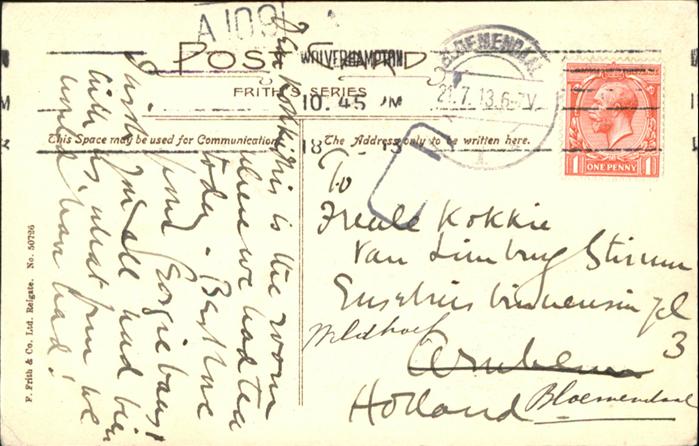 A 109
POST CARD
WOLVERHAMPTON
FRITH'S SERIES
10.45 M
18
BLOEMENDAAL
21.7.13.6-7V
1
ONE PENNY
1
This Space may be used for Communication.
The Address only to be written here.
Dear Kokkie
This is the room
where we had tea
today - Best love
from Georgie
you all had been
with us, what fun we
would have had!
To
Freule Kokkie
van Limburg Stirum
3
Wildhoef
Arnhem
Holland
Bloemendaal
F. Frith & Co. Ltd. Reigate. No. 50726